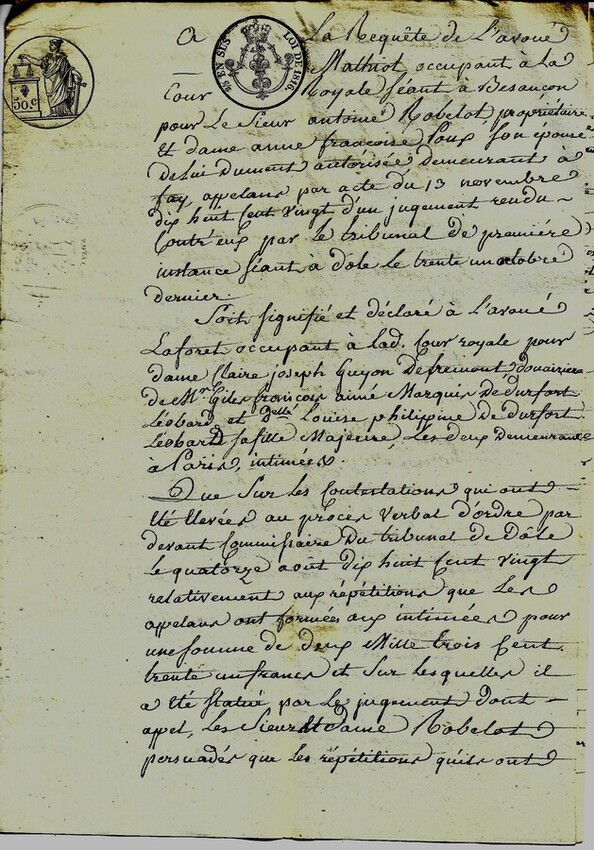 50.C
¼ EN SUS
LOI DE 1816
A La Requête de L'avoué
Mathiot, occupant à La
Cour Royale séant à Besançon
pour Le Sieur antoine Robelot, propriétaire
et dame anne francoise Roux son épouse
de lui dument autorisée demeurant à
fay, appelans par acte du 13 novembre
dix huit Cent vingt d'un jugement rendu
Contr'eux par le tribunal de première
instance séant à dole le trente un octobre
dernier.
Soit signifié et déclaré à L'avoué
Laforet occupant à lad. Cour royale pour
dame Claire joseph Guyon Defremont douairiere
de Mr. Giles francois aimé Marquis De Durfort
Léobard, et delle Louise philippine De Durfort
Léobard sa fille Majeure, les deux Demeurant
à Paris, intimées.
Que Sur les Contestations qui ont
été élevées au procès verbal d'ordre par
devant Commissaire du tribunal de Dôle
le quatorze août dix huit Cent vingt
relativement aux répétitions que Les
appelans ont formées aux intimées pour
une somme de deux Mille trois Cent
trente un francs et Sur lesquelles il
a été statué par le jugement dont
appel, les Sieur et Dame Robelot
persuadés que les répétitions qu'ils ont